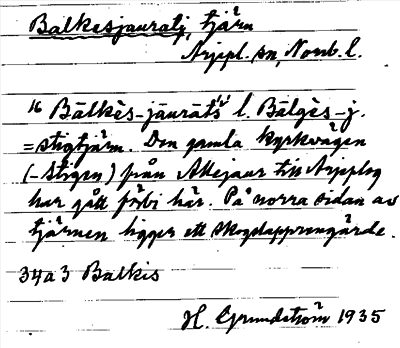 Balkesjauratj, tjärn
Arjepl. sn, Norrb. l.
16 Bālkēs-jāurāts l. Bālgēs-j.
=stigtjärn. Den gamla kyrkvägen
(-stigen) från Allejaur till Arjeplog
har gått förbi här. På norra sidan av
tjärnen ligger ett skogslappsgärde.
34a3 Balkis
H. Grundström 1935